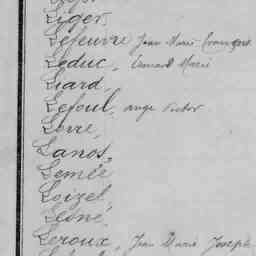 Liger,
Lefeuvre Jean Marie
Leduc, Marie
Liard,
Lefoul, ange Victor
Lorre,
Lanos,
Lemée
Loizel,
Léone,
Leroux, Jean Marie Joseph